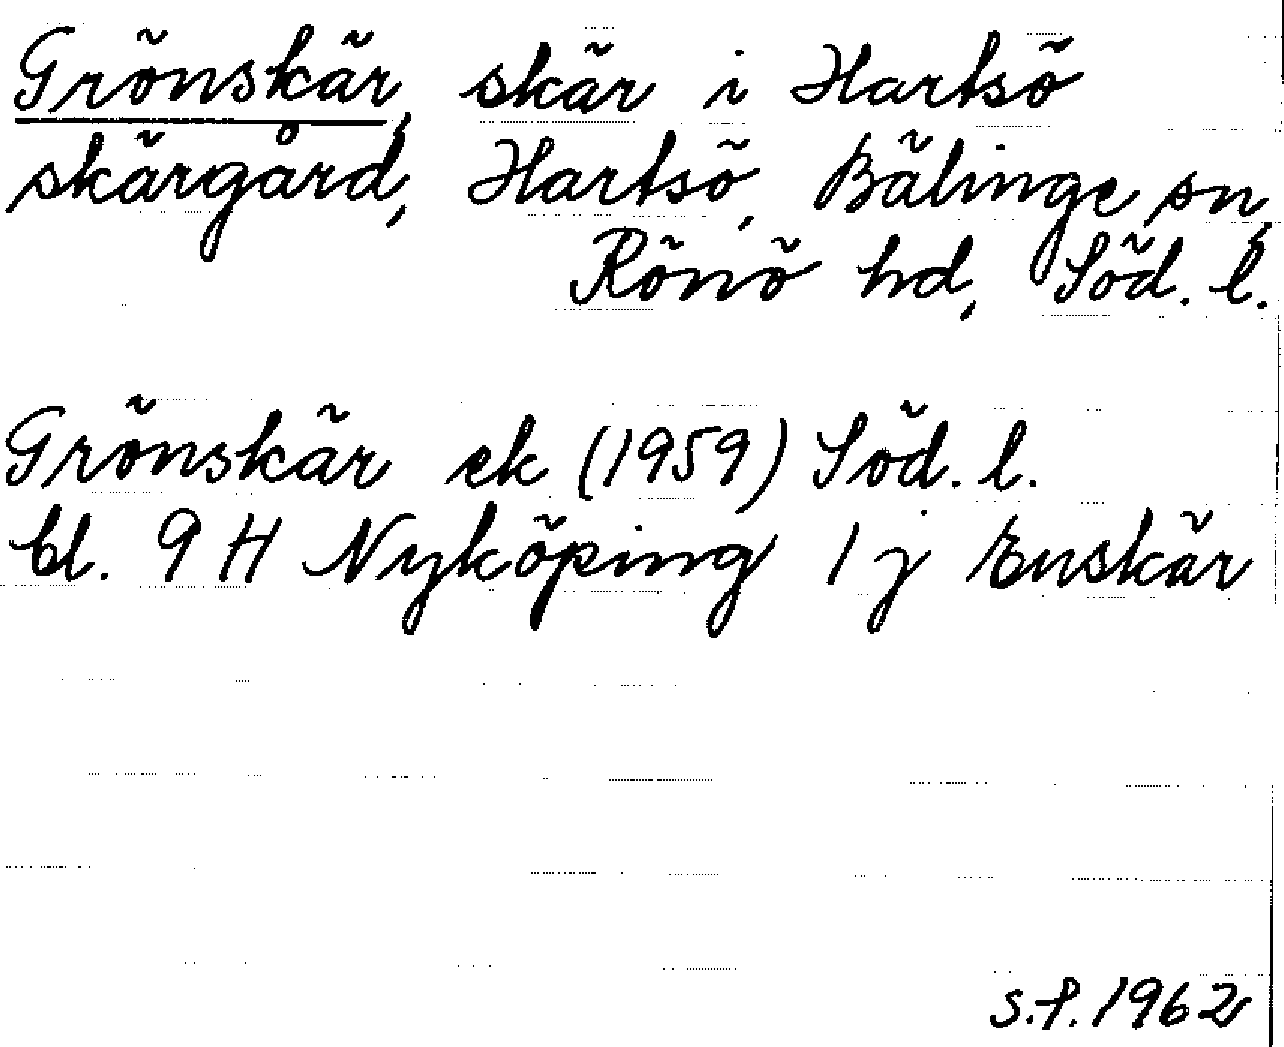 Grönskär, skär i Hartsö
skärgård, Hartsö, Bälinge sn,
Rönö hd, Söd. l.
Grönskär ek (1959) Söd. l.
bl. 9 H Nyköping 1 j Enskär
s.f. 1962